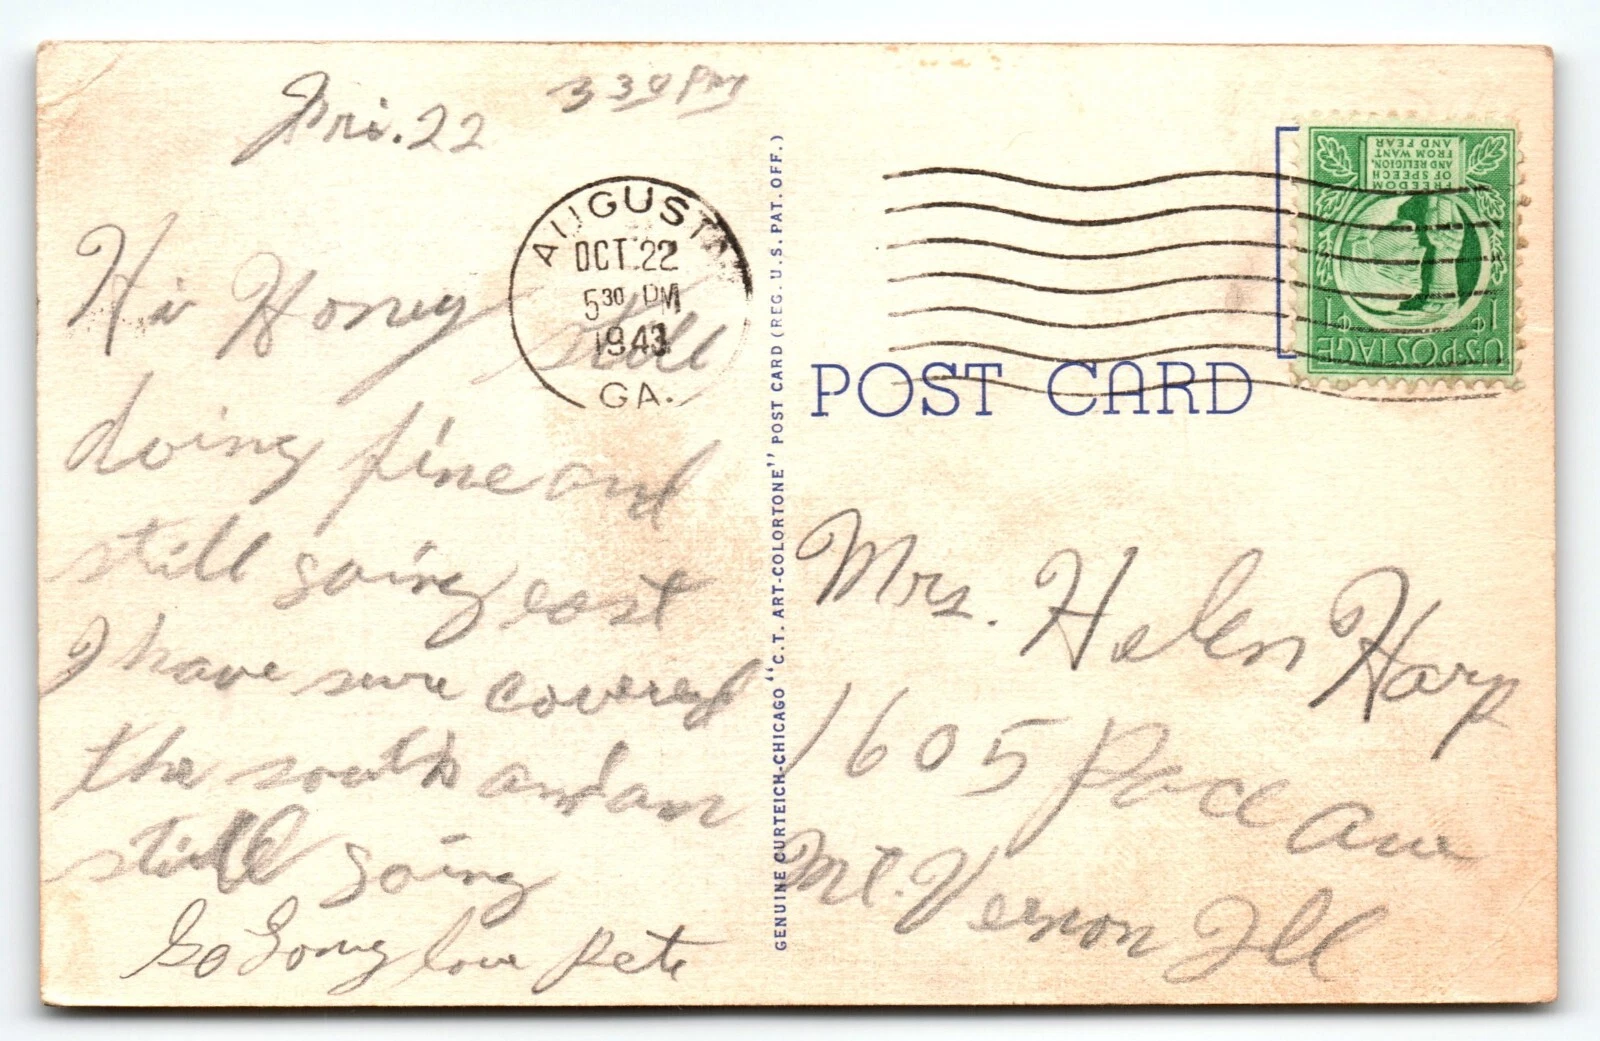 Fri. 22
3 30 PM
AUGUSTA
OCT 22
5 30 PM
1943
GA.
Hi Honey still
doing fine and
still going east
I have sure covered
the south and am
still going
So Long love Pete
GENUINE CURTEICH-CHICAGO "C.T. ART-COLORTONE" POST CARD (REG. U.S. PAT. OFF.)
POST CARD
U.S. POSTAGE
1¢ 1¢
FREEDOM
OF SPEECH
AND RELIGION,
FROM WANT
AND FEAR
Mrs. Helen Harp
1605 Pace Ave
Mt. Vernon Ill